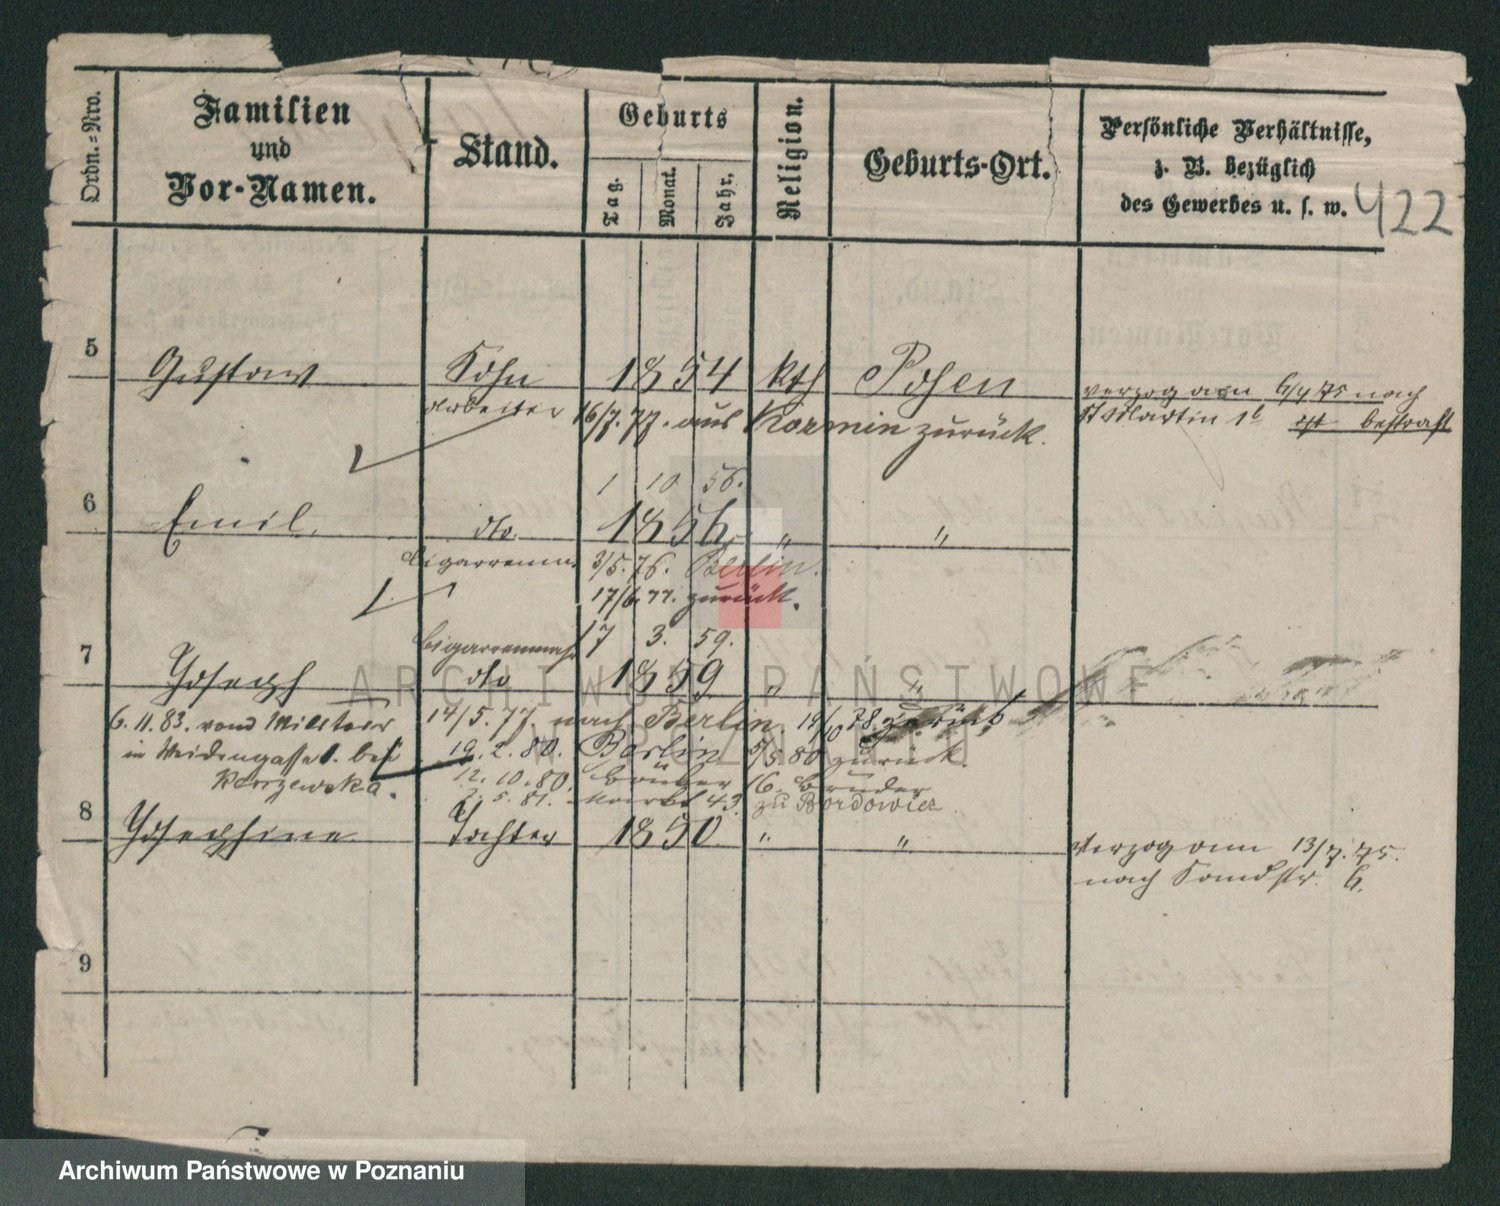 Ordn.=Nro.
Familien
und
Vor-Namen.
Stand.
Geburts
Tag.
Monat.
Jahr.
Religion.
Geburts-Ort.
Persönliche Verhältnisse,
z. B. bezüglich
des Gewerbes u. s. w.
422
5
Gustaw Sohn 1854 kth Posen verzog am 6/4 75 nach
Arbeiter 16/7. 77. aus Kozmin zurück. St Martin ist bestraft
1 10 56.
6
Emil. dto. 1856 " "
Cigarrenm. 3/5. 76. Berlin.
17/6. 77. zurück.
17 3. 59.
7
Cigarrenmchr
Joseph dto 1859 " "
6. 11. 83. vom Militair 14/5. 77. nach Berlin. 19/10 78 zurück
in Weidengasse bei 19. 2. 80. Berlin 5/5 80 zurück.
12. 10. 80. 16. Bruder
2. 5. 81. Markt 43. zu Bordowicz
8
Josephine Tochter 1850 " " Verzog am 13/7. 75.
nach Sandstr. 6.
9
ARCHIWUM PAŃSTWOWE
W POZNANIU
Archiwum Państwowe w Poznaniu